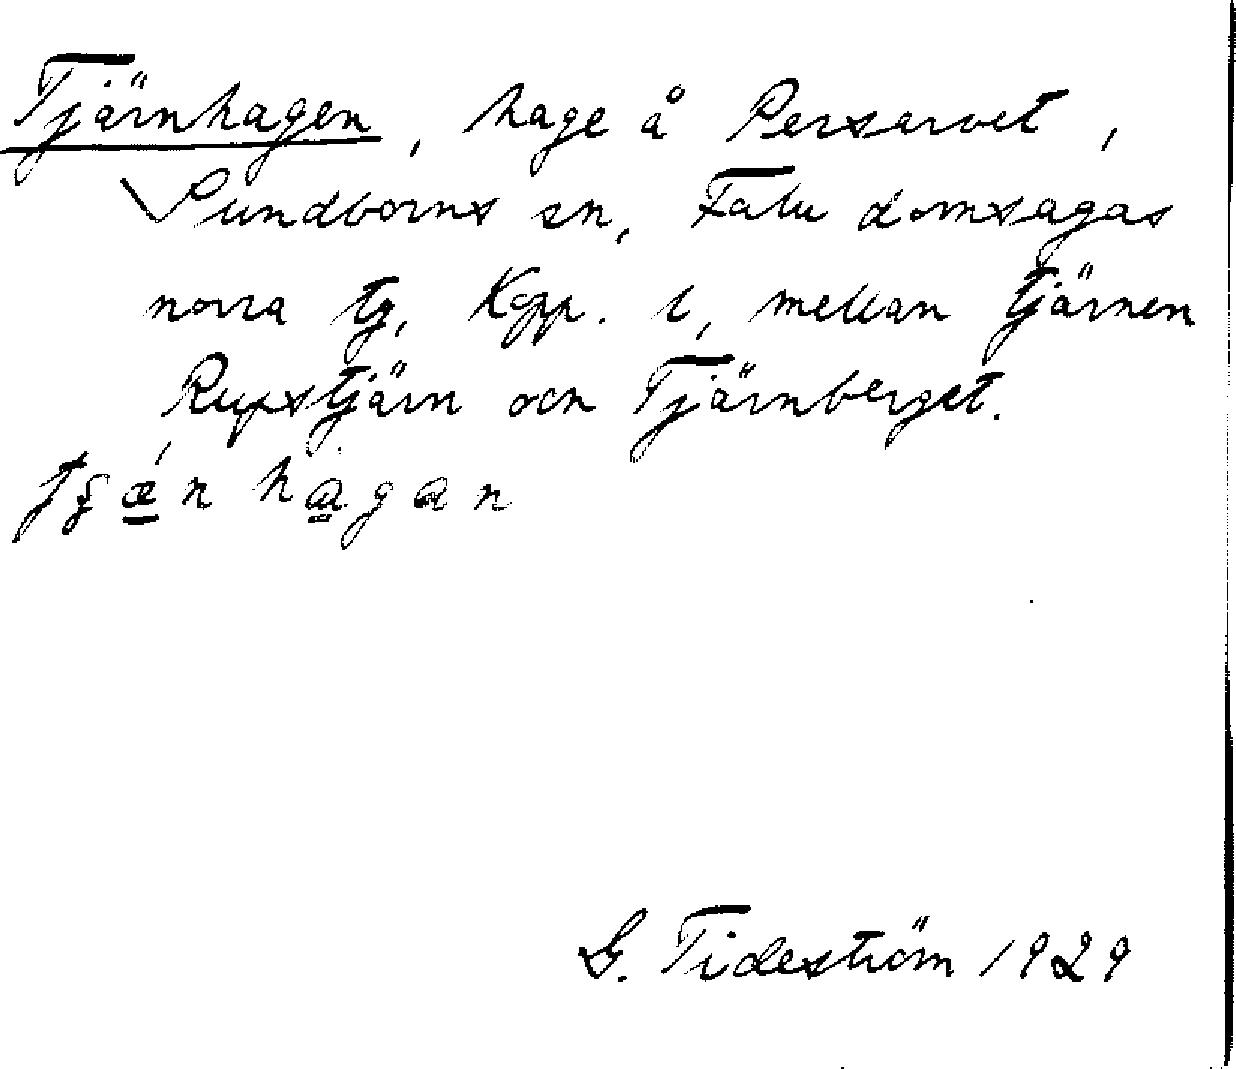 Tjärnhagen, hage å Persarvet,
Sundborns sn, Falu domsagas
norra tg, Kopp. l, mellan tjärnen
Rupstjärn och Tjärnberget.
G. Tideström 1929